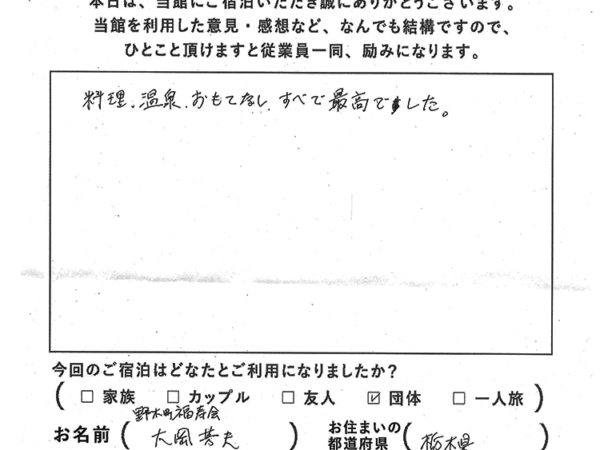 本日は、当館にご宿泊いただき誠にありがとうございます。
当館を利用した意見・感想など、なんでも結構ですので、
ひとこと頂けますと従業員一同、励みになります。
料理、温泉、おもてなし、すべで最高でした。
今回のご宿泊はどなたとご利用になりましたか?
( □ 家族 □ カップル □ 友人 ☑ 団体 □ 一人旅 )
野木町福寿会
お名前 ( 大岡芳夫 ) お住まいの都道府県 ( 栃木県